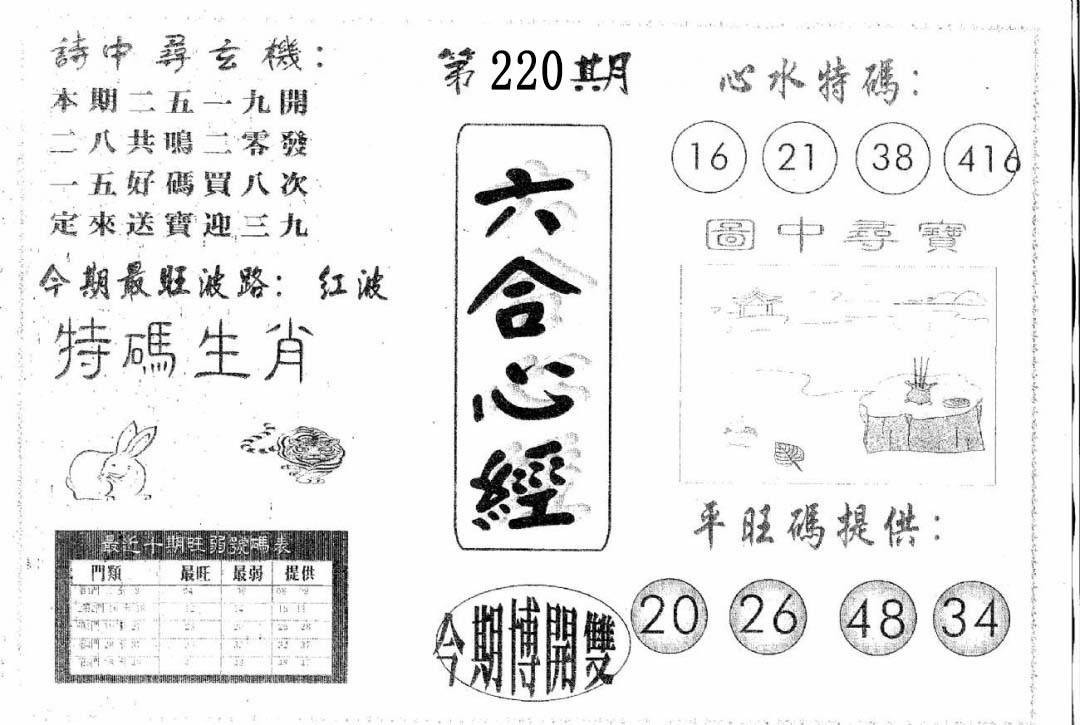 詩中尋玄機：
本期二五一九開
二八共鳴二零發
一五好碼買八次
定來送寶迎三九
今期最旺波路：紅波
特碼生肖
最近十期旺弱號碼表
門類 最旺 最弱 提供
第220期
六合心經
今期博開雙
心水特碼：
16 21 38 416
圖中尋寶
平旺碼提供：
20 26 48 34